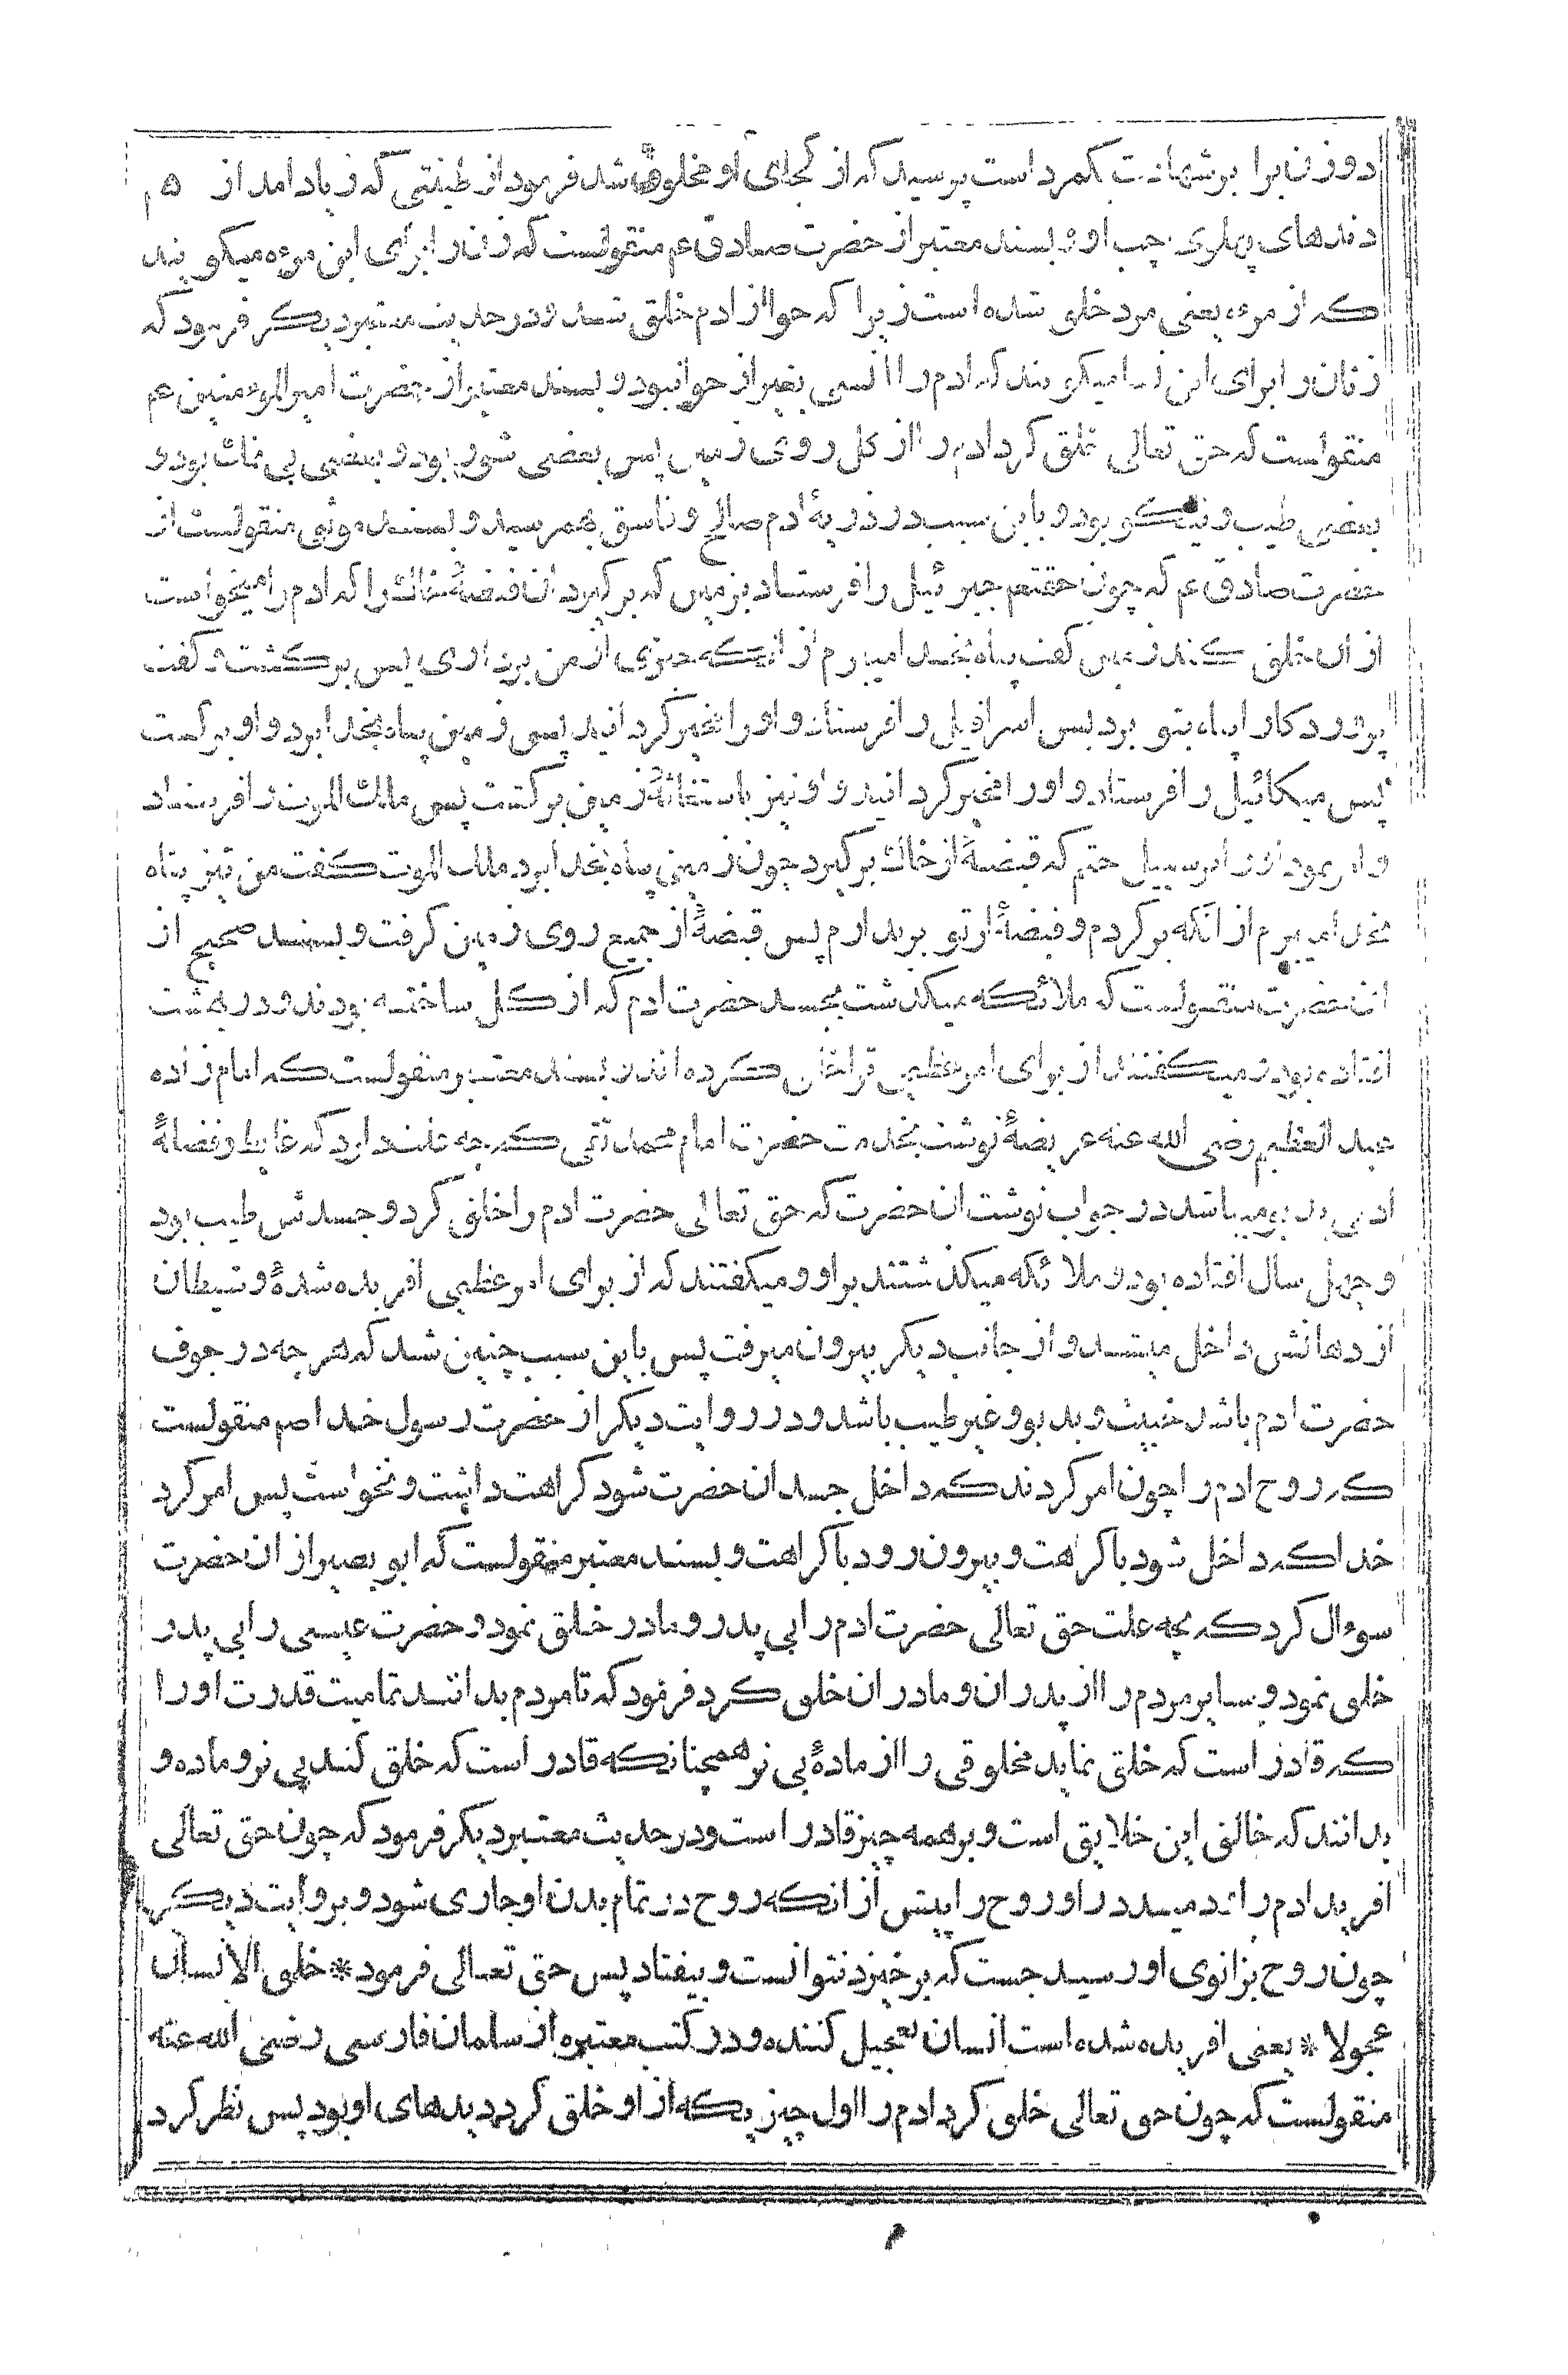 دو زن برا برشهادت یکمرد است پرسید که از کجای او مخلوق شد فرمود از طینتی که زیاد امد از ۵م
دندهای پهلوی چپ او و بسند معتبر از حضرت صادق عم منقولست که زنان را برای این مرءه میکویند
که از مرء یعنی مرد خلق شده است زیرا که حوا از ادم خلق شد و در حدیث معتبر دیکر فرمود که
زنان را برای این نسا میکویند که ادم را انسی بغیر از حوا نبود و بسند معتبر از حضرت امیرالموءمنین عم
منقولست که حق تعالی خلق کرد ادم را از کل روی زمین پس بعضی شور بود و بعضی بی نمک بود و
بعضی طیب و نیکو بود و باین سبب در ذریهٔ ادم صالح و فاسق بهمرسید و بسند موثق منقولست از
حضرت صادق عم که چون حقتعم جبرئیل را فرستاد بزمین که برکیرد ان قبضهٔ خاک را که ادم را میخواست
از ان خلق کند زمین کفت پناه بخدا میبرم از انکه چیزی از من برداری پس برکشت و کفت
پروردکارا پناه بتو برد پس اسرافیل را فرستاد و او را مخیر کردانید پس زمین پناه بخدا برد و او برکشت
پس میکائیل را فرستاد و او را مخیر کردانید و او نیز باستغاثهٔ زمین برکشت پس ملک الموت را فرستاد
و امر نمود او را بر سبیل حتم که قبضهٔ از خاک برکیرد چون زمین پناه بخدا برد ملک الموت کفت من نیز پناه
بخدا میبرم از انکه برکردم و قبضهٔ از تو برندارم پس قبضهٔ از جمیع روی زمین کرفت و بسند صحیح از
ان حضرت منقولست که ملائکه میکذشت بجسد حضرت ادم که از کل ساخته بودند و در بهشت
افتاده بود و میکفتند از برای امر عظیمی ترا خلق کرده اند و بسند معتبر منقولست که امام زاده
عبد العظیم رضی الله عنه عریضهٔ نوشت بخدمت حضرت امام محمد تقی که چه علت دارد که غایط و فضلهٔ
ادمی بد بو میباشد در جواب نوشت ان حضرت که حق تعالی حضرت ادم را خلق کرد و جسدش طیب بود
و چهل سال افتاده بود و ملائکه میکذشتند بر او و میکفتند که از برای امر عظیمی افریده شدهٔ و شیطان
از دهانش داخل میشد و از جانب دیکر بیرون میرفت پس باین سبب چنین شد که هر چه در جوف
حضرت ادم باشد خبیث و بد بو و غیر طیب باشد و در روایت دیکر از حضرت رسول خدا صم منقولست
که روح ادم را چون امر کردند که داخل جسد ان حضرت شود کراهت داشت و نخواست پس امر کرد
خدا که داخل شود با کراهت و بیرون رود با کراهت و بسند معتبر منقولست که ابو بصیر از ان حضرت
سوءال کرد که بچه علت حق تعالی حضرت ادم را بی پدر و مادر خلق نمود و حضرت عیسی را بی پدر
خلق نمود و سایر مردم را از پدران و مادران خلق کرد فرمود که تا مردم بدانند تمامیت قدرت او را
که قادر است که خلق نماید مخلوقی را از مادهٔ بی نر همچنانکه قادر است که خلق کند بی نر و ماده و
بدانند که خالق این خلایق است و بر همه چیز قادر است و در حدیث معتبر دیکر فرمود که چون حق تعالی
افرید ادم را و دمید در او روح را پیش از انکه روح در تمام بدن او جاری شود و بروایت دیکر
چون روح بزانوی او رسید جست که برخیزد نتوانست و بیفتاد پس حق تعالی فرمود * خلق الانسان
عجولا * یعنی افریده شده است انسان تعجیل کننده و در کتب معتبره از سلمان فارسی رضی الله عنه
منقولست که چون حق تعالی خلق کرد ادم را اول چیزیکه از او خلق کرد دیدهای او بود پس نظر کرد